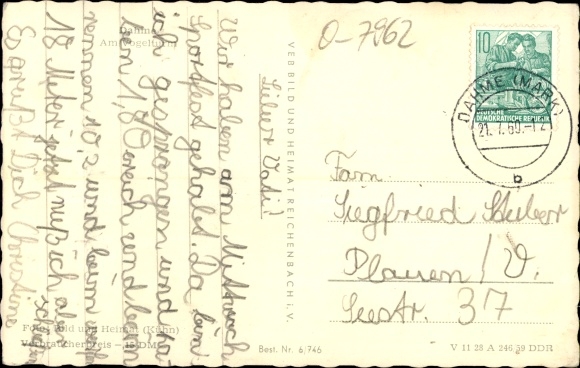 Dahme
Am Vogelturm
Lieber Vati!
Wir haben am Mittwoch
Sportfest gehabt. Da bin
ich gesprungen und ha-
be 1,80 ereich und beim
rennen 10,2 und beim
18 Meter jetzt
Es grüßt Dich Christine
Foto: Bild und Heimat (Kühn)
Verbraucherpreis –.15 DM
VEB BILD UND HEIMAT REICHENBACH i. V.
Best. Nr. 6/746
O-7962
10
DEUTSCHE
DEMOKRATISCHE REPUBLIK
DAHME (MARK)
21.7.60.-12
b
Fam
Siegfried
Plauen / V.
Seestr. 37
V 11 28 A 246 59 DDR